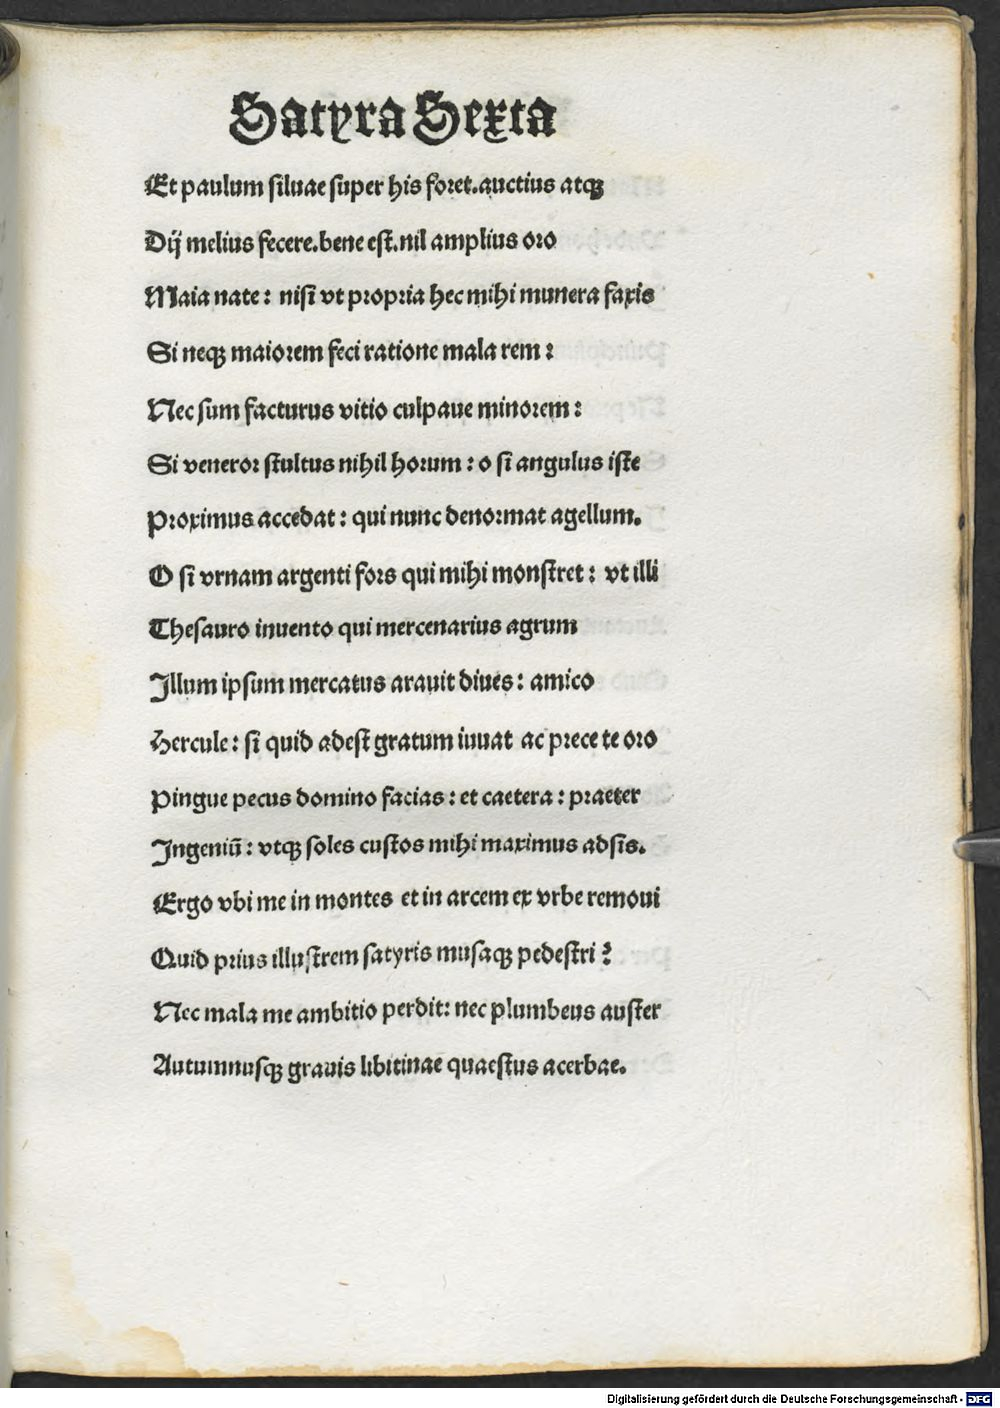 Satyra Sexta
Et paulum siluae super his foret.auctius atqꝫ
Dij melius fecere.bene est.nil amplius oro
Maia nate: nisi vt propria hec mihi munera faxis
Si neqꝫ maiorem feci ratione mala rem:
Nec sum facturus vitio culpaue minorem:
Si veneror stultus nihil horum: o si angulus iste
Proximus accedat: qui nunc denormat agellum.
O si vrnam argenti fors qui mihi monstret: vt illi
Thesauro inuento qui mercenarius agrum
Illum ipsum mercatus arauit diues: amico
Hercule: si quid adest gratum iuuat ac prece te oro
Pingue pecus domino facias: et caetera: praeter
Ingeniū: vtqꝫ soles custos mihi maximus adsis.
Ergo vbi me in montes et in arcem ex vrbe remoui
Quid prius illustrem satyris musaqꝫ pedestri?
Nec mala me ambitio perdit: nec plumbeus auster
Autumnusqꝫ grauis libitinae quaestus acerbae.
Digitalisierung gefördert durch die Deutsche Forschungsgemeinschaft - DFG